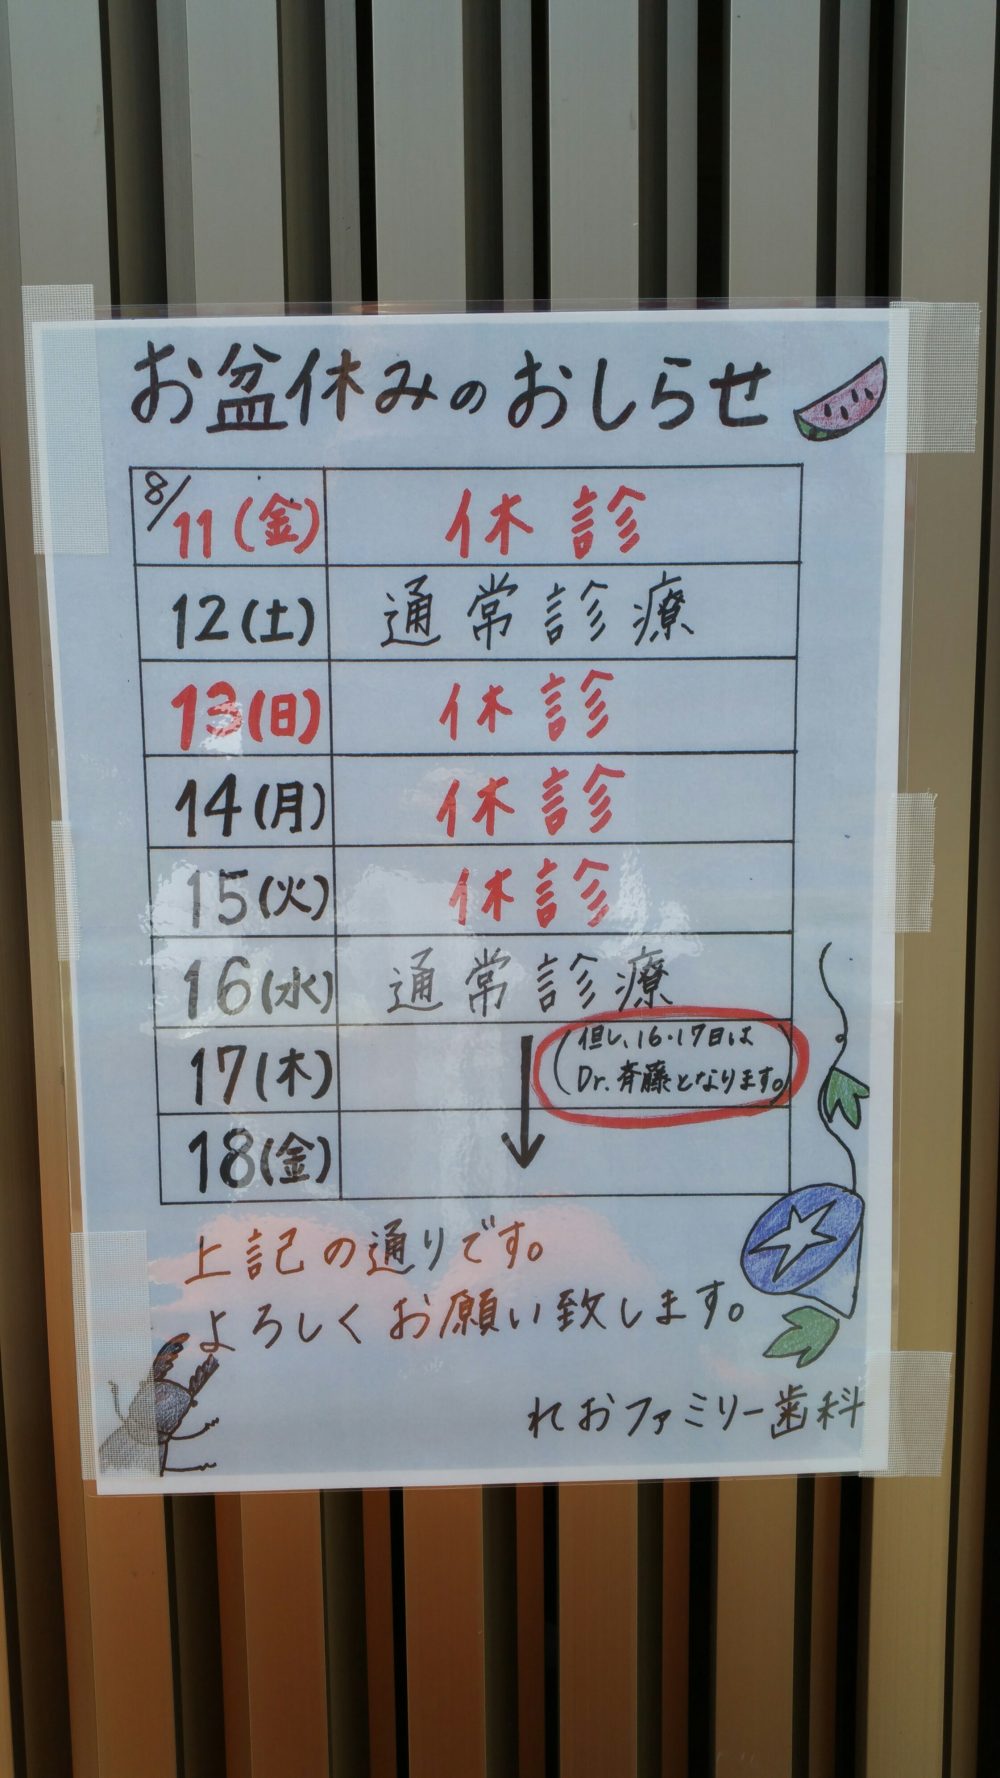 お盆休みのおしらせ
8/11(金) 休診
12(土) 通常診療
13(日) 休診
14(月) 休診
15(火) 休診
16(水) 通常診療
17(木) ↓ (但し、16・17日は
Dr.斉藤となります。)
18(金)
上記の通りです。
よろしくお願い致します。
れおファミリー歯科